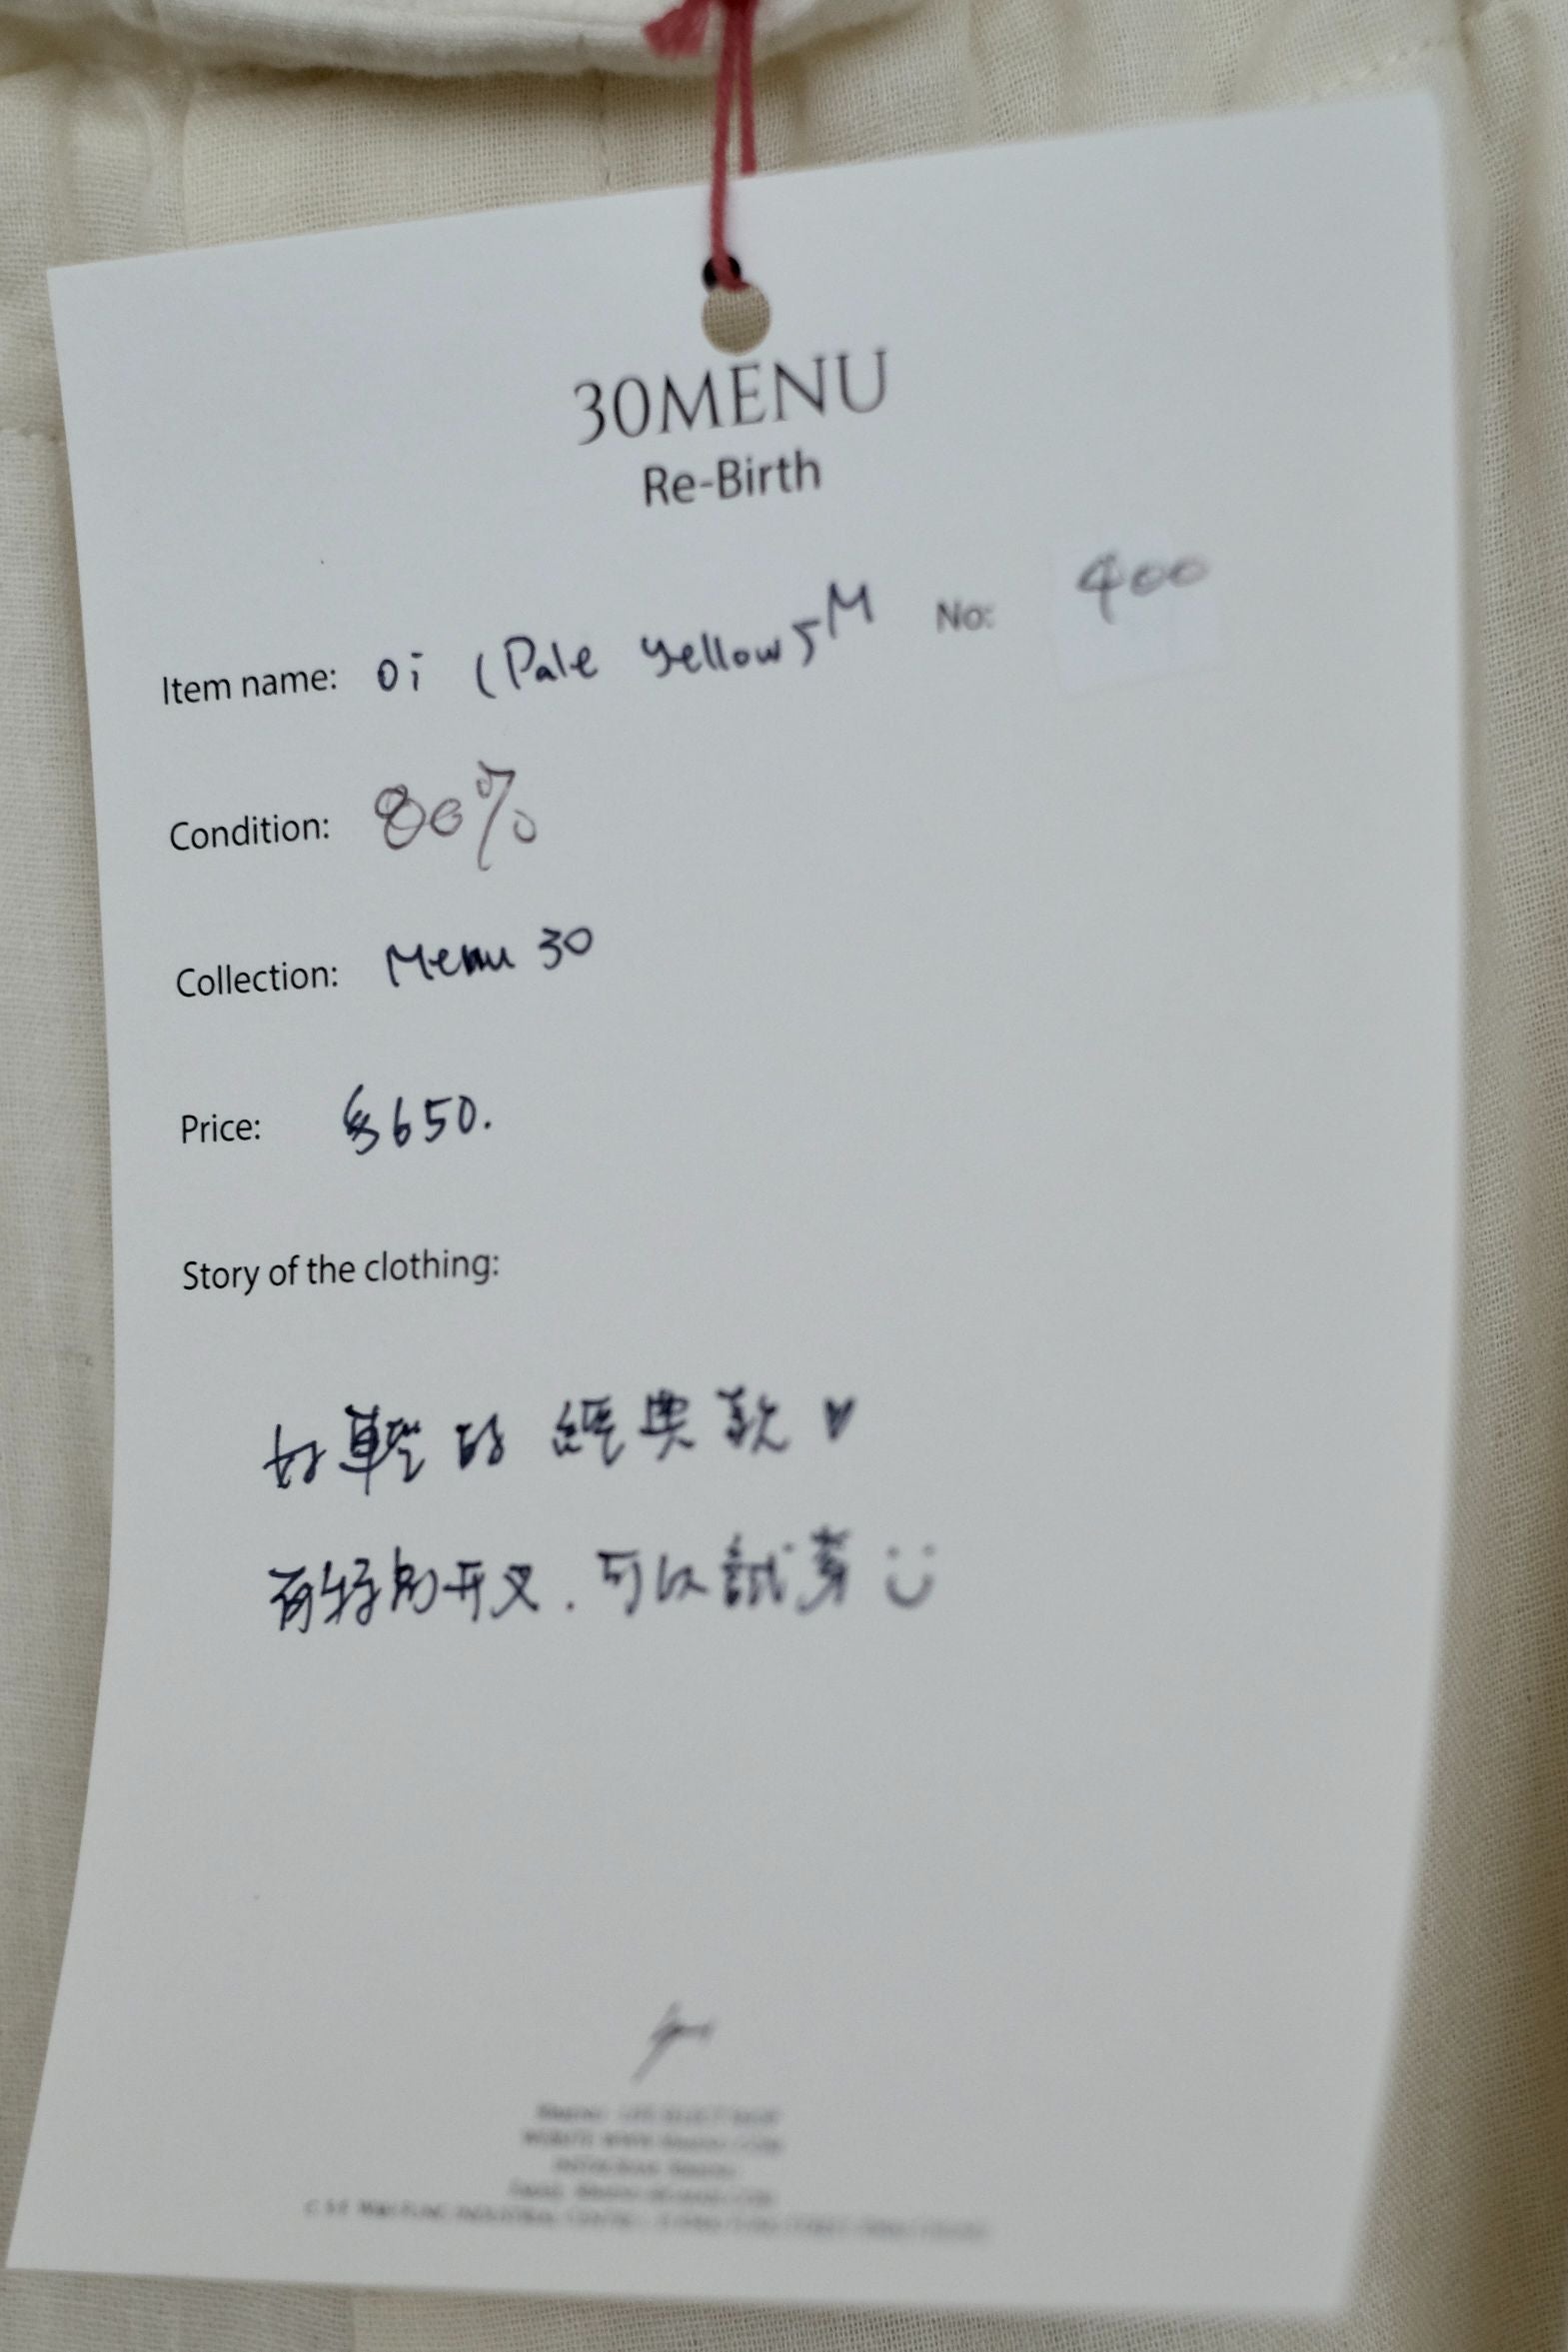 30MENU
Re-Birth
Item name: Oi (Pale Yellow) M No: 400
Condition: 80%
Collection: Menu 30
Price: $650.
Story of the clothing:
好輕的經典款 ♥
有特別开叉.可以試穿